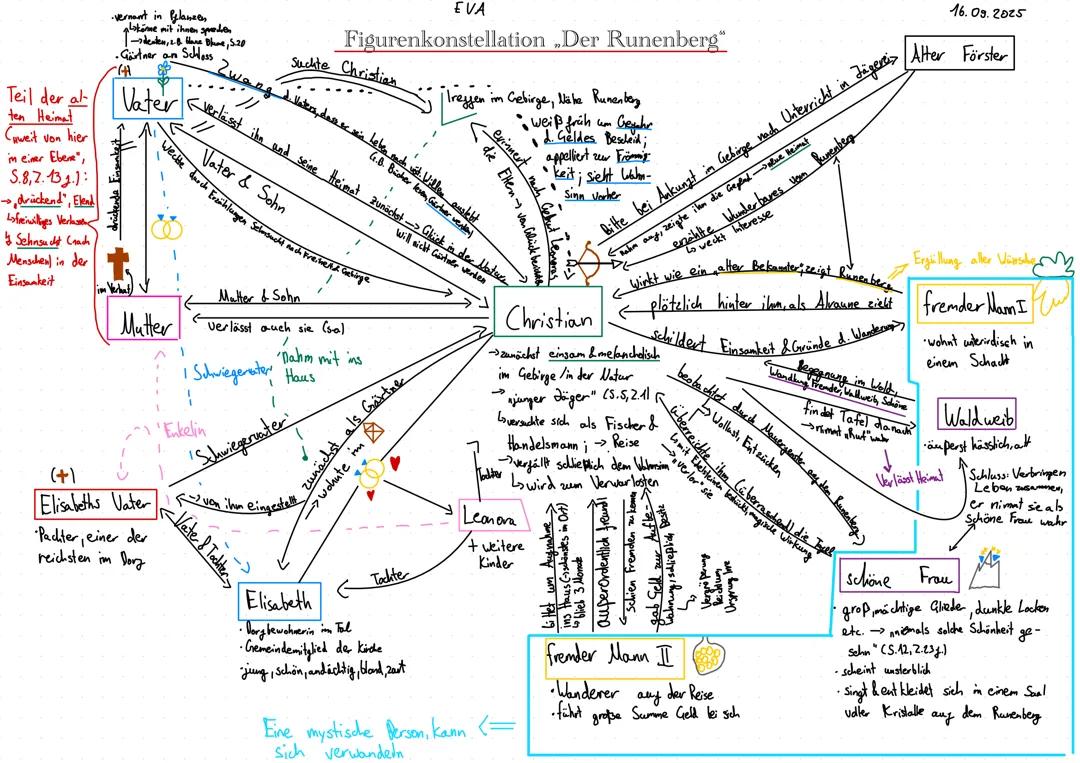 EVA
16.09.2025
Figurenkonstellation „Der Runenberg"
• vernarrt in Pflanzen
↳ könne mit ihnen sprechen
→ denken, z.B. blaue Blume, S.20
• Gärtner am Schloss
(✝)
Vater
Teil der al-
ten Heimat
("weit von hier
in einer Ebene",
S.8, Z.13f.):
→ „drückend", Elend
↳ freiwilliges Verlassen
↯ Sehnsucht (nach
Menschen) in der
Einsamkeit
drückende Einsamkeit
im Verlauf
Mutter
Suchte Christian
Treffen im Gebirge, Nähe Runenberg
weiß früh um Gefahr
d. Geldes Bescheid;
appelliert zur Frömmig-
keit; sieht Wahn-
sinn vorher
Zwang d. Vaters, dass er sein Leben nach
verlässt ihn und seine Heimat
zunächst → Glück in der Natur
will nicht Gärtner werden
Vater & Sohn
weckte durch Erzählungen Sehnsucht nach Gebirge
erinnert nach Geburt Leonoras
die Eltern → von Glück
Mutter & Sohn
verlässt auch sie
Alter Förster
Bitte bei Ankunft im Gebirge nach Unterricht in Jägerei
nahm ihn auf, zeigte ihm die Gegend → neue Heimat
erzählte Wunderbares vom Runenberg
↳ weckt Interesse
Christian
→ zunächst einsam & melancholisch
im Gebirge / in der Natur
→ „junger Jäger" (S.5, Z.1)
↳ versuchte sich als Fischer &
Handelsmann; → Reise
→ verfällt schließlich dem Wahnsinn
↳ wird zum Verwahrlosten
Wirkt wie ein „alter Bekannter"; zeigt Runenberg
Erfüllung aller Wünsche
plötzlich hinter ihm, als Alraune zieht
schildert Einsamkeit & Gründe d. Wanderung
fremder Mann I
• wohnt unterirdisch in
einem Schacht
Begegnung im Wald,
Wandlung Fremder, Waldweib, Schöne
findet Tafel danach
→ nimmt „Hut" wahr
Verlässt Heimat
Waldweib
• äußerst hässlich, alt
Schluss: Verbringen
Leben zusammen,
er nimmt sie als
schöne Frau wahr
beobachtet durch Mauerfenster auf dem Runenberg
→ Wollust, Entzücken
überreichte ihm (überraschend) die Tafel
↳ mit Edelsteinen bestückt, magische Wirkung
→ verlor sie
schöne Frau
• groß, mächtige Glieder, dunkle Locken
etc. → „niemals solche Schönheit ge-
sehn" (S.12, Z.23f.)
• scheint unsterblich
• singt & entkleidet sich in einem Saal
voller Kristalle auf dem Runenberg
Schwiegervater
nahm mit ins
Haus
Enkelin
Schwiegervater
zunächst als Gärtner
→ wohnte im
von ihm eingestellt
(✝)
Elisabeths Vater
• Pächter, einer der
reichsten im Dorf
Vater & Tochter
Elisabeth
• Dorfbewohnerin im Tal
• Gemeindemitglied der Kirche
• jung, schön, andächtig, blond, zart
Tochter
Leonora
+ weitere
Kinder
Tochter
bittet um Aufnahme
ins Haus (→ schönstes im Ort)
↳ blieb 3 Monate
außerordentlich freundl.
→ schien Fremden zu kennen
gab Geld zur Aufbe-
wahrung; schließlich Besitz
fremder Mann II
• Wanderer auf der Reise
• führt große Summe Geld bei sich
Eine mystische Person, kann
sich verwandeln